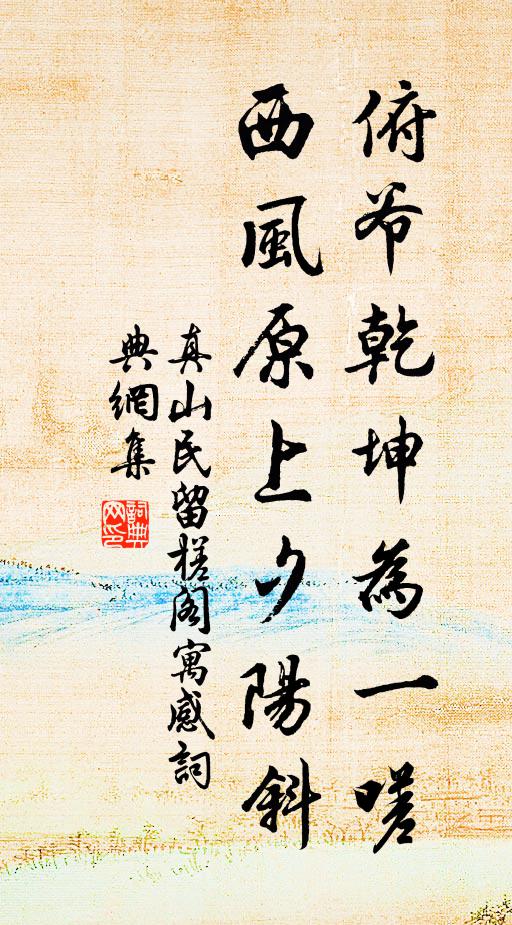 俯乾坤為一嗟
西風原上夕陽斜
真山民留槎阁寓感詞
典網集
詞典网印